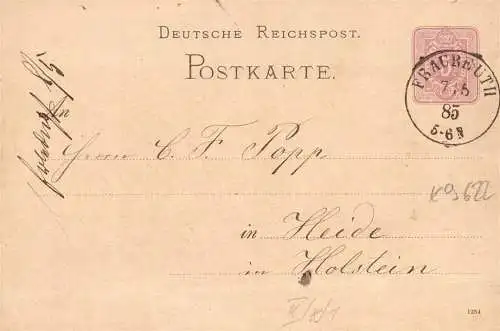 DEUTSCHE REICHSPOST.
POSTKARTE.
FRAUREUTH
7/5
85
5-6N
An
Herrn C. F. Popp
in Heide
in Holstein
1284